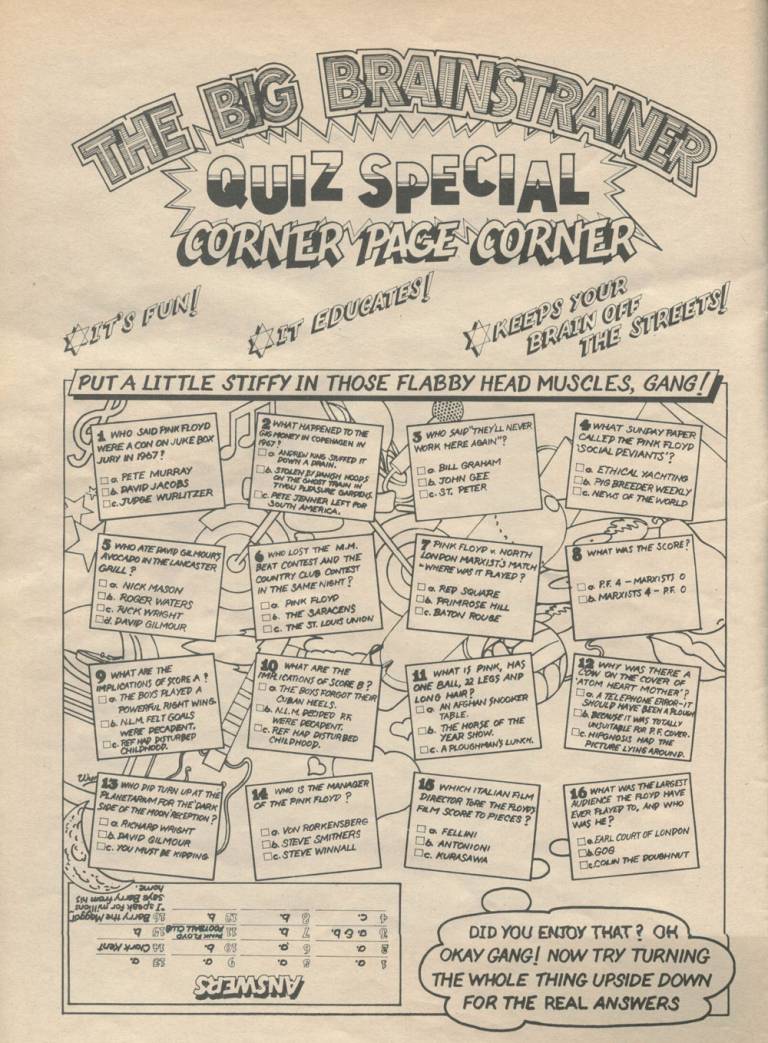 THE BIG BRAINSTRAINER
QUIZ SPECIAL
CORNER PAGE CORNER
IT'S FUN!
IT EDUCATES!
KEEPS YOUR
BRAIN OFF
THE STREETS!
PUT A LITTLE STIFFY IN THOSE FLABBY HEAD MUSCLES, GANG!
1 WHO SAID PINK FLOYD
WERE A CON ON JUKE BOX
JURY IN 1967?
a. PETE MURRAY
b. DAVID JACOBS
c. JUDGE WURLITZER
2 WHAT HAPPENED TO THE
GIG MONEY IN COPENHAGEN IN
1967?
a. ANDREW KING STUFFED IT
DOWN A DRAIN.
b. STOLEN BY DANISH HOODS
ON THE GHOST TRAIN IN
TIVOLI PLEASURE GARDENS.
c. PETE JENNER LEFT FOR
SOUTH AMERICA.
3 WHO SAID "THEY'LL NEVER
WORK HERE AGAIN"?
a. BILL GRAHAM
b. JOHN GEE
c. ST. PETER
4 WHAT SUNDAY PAPER
CALLED THE PINK FLOYD
'SOCIAL DEVIANTS'?
a. ETHICAL YACHTING
b. PIG BREEDER WEEKLY
c. NEWS OF THE WORLD
5 WHO ATE DAVID GILMOUR'S
AVOCADO IN THE LANCASTER
GRILL?
a. NICK MASON
b. ROGER WATERS
c. RICK WRIGHT
d. DAVID GILMOUR
6 WHO LOST THE M.M.
BEAT CONTEST AND THE
COUNTRY CLUB CONTEST
IN THE SAME NIGHT?
a. PINK FLOYD
b. THE SARACENS
c. THE ST. LOUIS UNION
7 PINK FLOYD v. NORTH
LONDON MARXIST'S MATCH
- WHERE WAS IT PLAYED?
a. RED SQUARE
b. PRIMROSE HILL
c. BATON ROUGE
8 WHAT WAS THE SCORE?
a. P.F. 4 - MARXISTS 0
b. MARXISTS 4 - P.F. 0
9 WHAT ARE THE
IMPLICATIONS OF SCORE A?
a. THE BOYS PLAYED A
POWERFUL RIGHT WING.
b. N.L.M. FELT GOALS
WERE DECADENT.
c. REF HAD DISTURBED
CHILDHOOD.
10 WHAT ARE THE
IMPLICATIONS OF SCORE B?
a. THE BOYS FORGOT THEIR
CUBAN HEELS.
b. N.L.M. DECIDED P.F.
WERE DECADENT.
c. REF HAD DISTURBED
CHILDHOOD.
11 WHAT IS PINK, HAS
ONE BALL, 22 LEGS AND
LONG HAIR?
a. AN AFGHAN SNOOKER
TABLE.
b. THE HORSE OF THE
YEAR SHOW.
c. A PLOUGHMAN'S LUNCH.
12 WHY WAS THERE A
COW ON THE COVER OF
'ATOM HEART MOTHER'?
a. A TELEPHONE ERROR-IT
SHOULD HAVE BEEN A PLOUGH
b. BECAUSE IT WAS TOTALLY
UNSUITABLE FOR P.F. COVER.
c. HIPGNOSIS HAD THE
PICTURE LYING AROUND.
13 WHO DID TURN UP AT THE
PLANETARIUM FOR THE DARK
SIDE OF THE MOON RECEPTION?
a. RICHARD WRIGHT
b. DAVID GILMOUR
c. YOU MUST BE KIDDING
14 WHO IS THE MANAGER
OF THE PINK FLOYD?
a. VON RORKENSBERG
b. STEVE SMITHERS
c. STEVE WINNALL
15 WHICH ITALIAN FILM
DIRECTOR TORE THE FLOYD'S
FILM SCORE TO PIECES?
a. FELLINI
b. ANTONIONI
c. KURASAWA
16 WHAT WAS THE LARGEST
AUDIENCE THE FLOYD HAVE
EVER PLAYED TO, AND WHO
WAS HE?
a. EARL COURT OF LONDON
b. GOG
c. COLIN THE DOUGHNUT
ANSWERS
1 a. 5 a. 9 a. 13 a.
2 a. 6 a. 10 b. 14 Clark Kent
3 a & b. 7 b. 11 PINK FLOYD FOOTBALL CLUB 15 b.
4 c. 8 b. 12 b. 16 Barry the Maggot
"I speak for millions"
says Barry from his
home.
DID YOU ENJOY THAT? OH
OKAY GANG! NOW TRY TURNING
THE WHOLE THING UPSIDE DOWN
FOR THE REAL ANSWERS